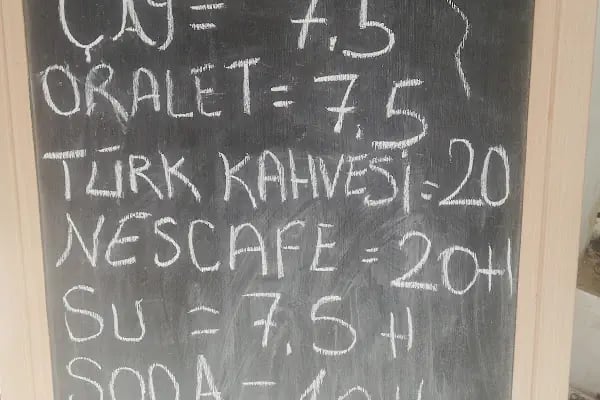 ÇAY = 7.5
ORALET = 7.5
TÜRK KAHVESİ = 20
NESCAFE = 20 tl
SU = 7.5 tl
SODA = 10 tl